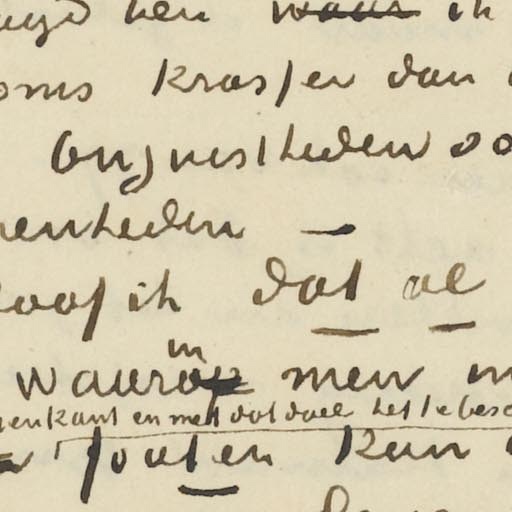 hen waar ik
soms krasser dan
Onjuistheden oo
enheden —
loof ik dat al
in
waarop men m
enkant en met dat doel het te besc
fouten kan